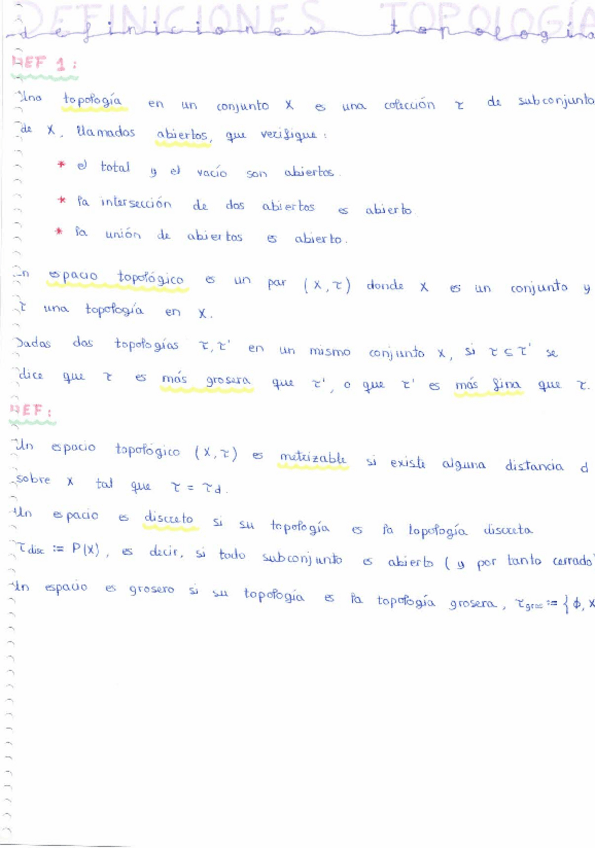 DEFINICIONES TOPOLOGÍA
definiciones topología
DEF 1:
Una topología en un conjunto X es una colección τ de subconjunto
de X, llamados abiertos, que verifique:
* el total y el vacío son abiertos.
* la intersección de dos abiertos es abierto.
* la unión de abiertos es abierto.
Un espacio topológico es un par (X,τ) donde X es un conjunto y
τ una topología en X.
Dadas dos topologías τ,τ' en un mismo conjunto X, si τ ⊆ τ' se
dice que τ es más grosera que τ', o que τ' es más fina que τ.
DEF:
Un espacio topológico (X,τ) es metrizable si existe alguna distancia d
sobre X tal que τ = τd.
Un espacio es discreto si su topología es la topología discreta
τdisc := P(X), es decir, si todo subconjunto es abierto (y por tanto cerrado)
Un espacio es grosero si su topología es la topología grosera, τgros := {ϕ, X